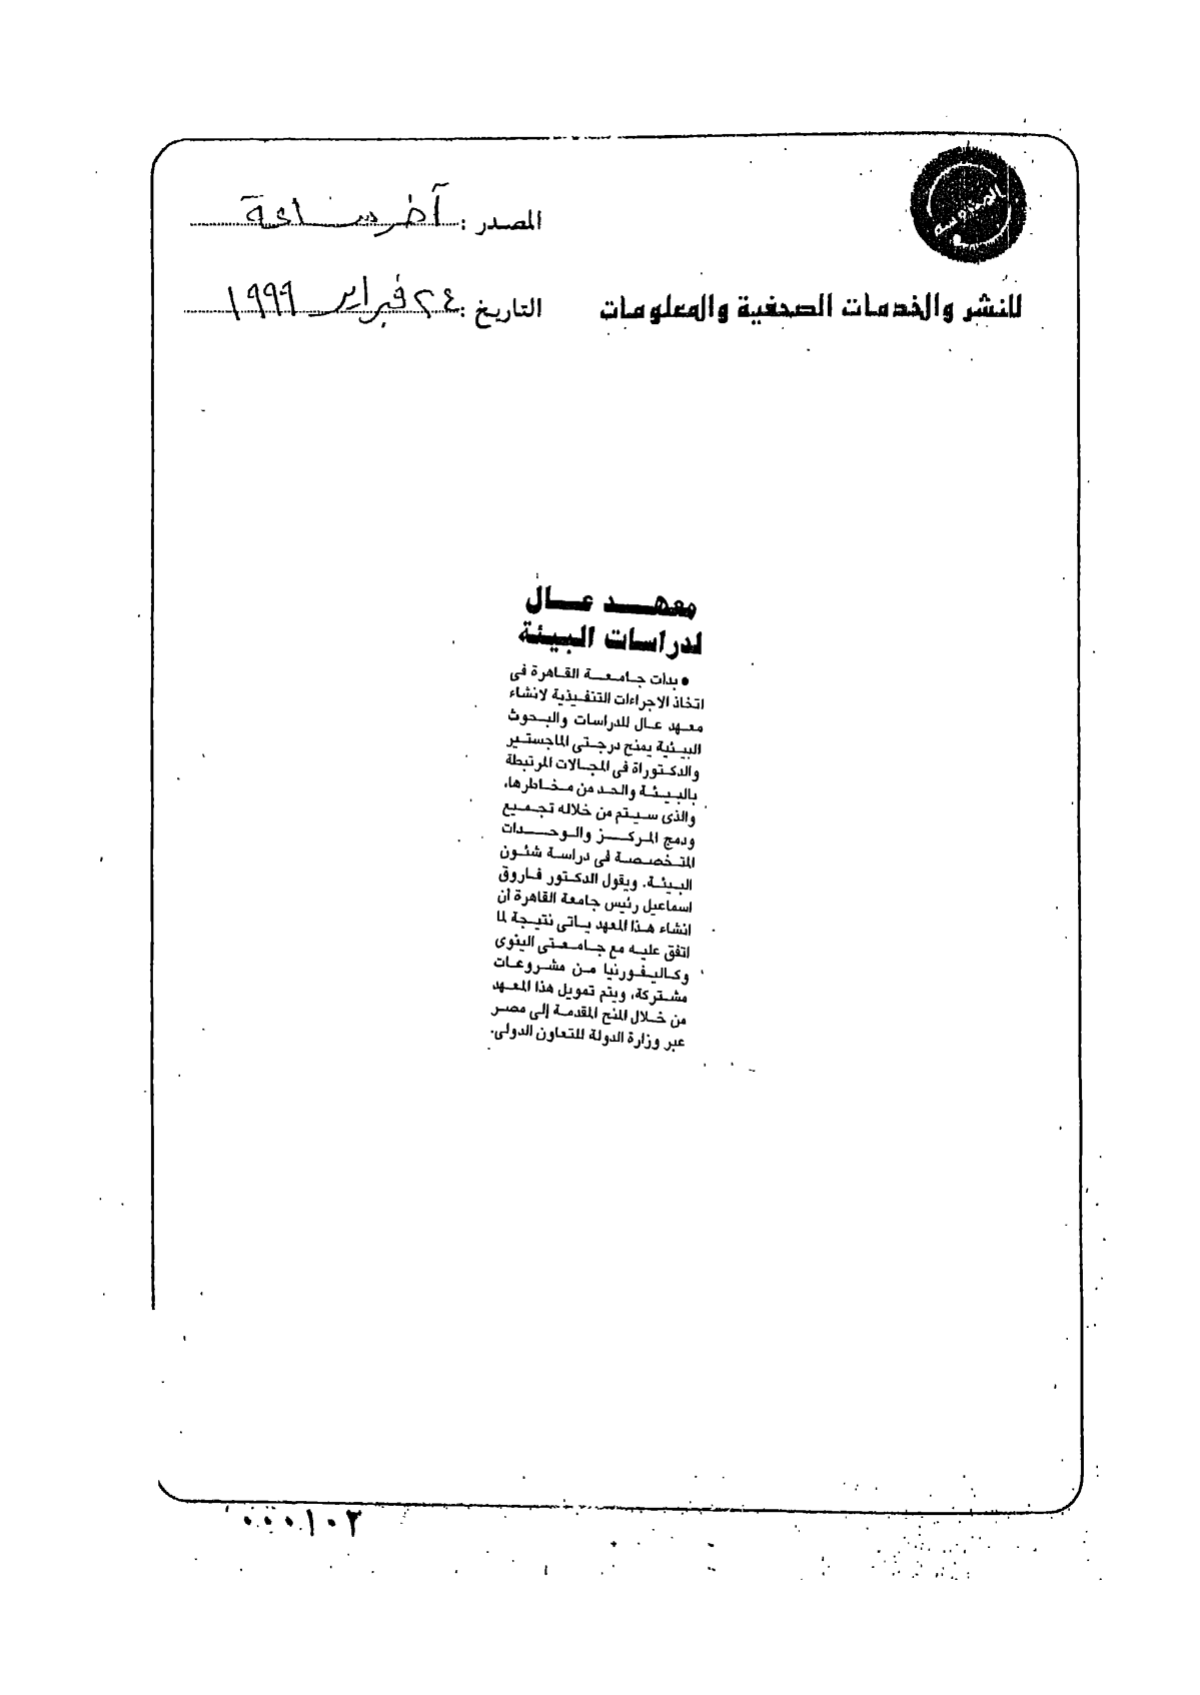 المحروسة
المصدر : آخر ساعة
للنشر والخدمات الصحفية والمعلومات
التاريخ : ٢٤ فبراير ١٩٩٩
معهد عال
لدراسات البيئة
● بدأت جامعة القاهرة فى
اتخاذ الاجراءات التنفيذية لانشاء
معهد عال للدراسات والبحوث
البيئية يمنح درجتى الماجستير
والدكتوراة فى المجالات المرتبطة
بالبيئة والحد من مخاطرها،
والذى سيتم من خلاله تجميع
ودمج المركز والوحدات
المتخصصة فى دراسة شئون
البيئة. ويقول الدكتور فاروق
اسماعيل رئيس جامعة القاهرة أن
انشاء هذا المعهد يأتى نتيجة لما
اتفق عليه مع جامعتى الينوى
وكاليفورنيا من مشروعات
مشتركة، ويتم تمويل هذا المعهد
من خلال المنح المقدمة إلى مصر
عبر وزارة الدولة للتعاون الدولى.
٠٠٠١٠٢